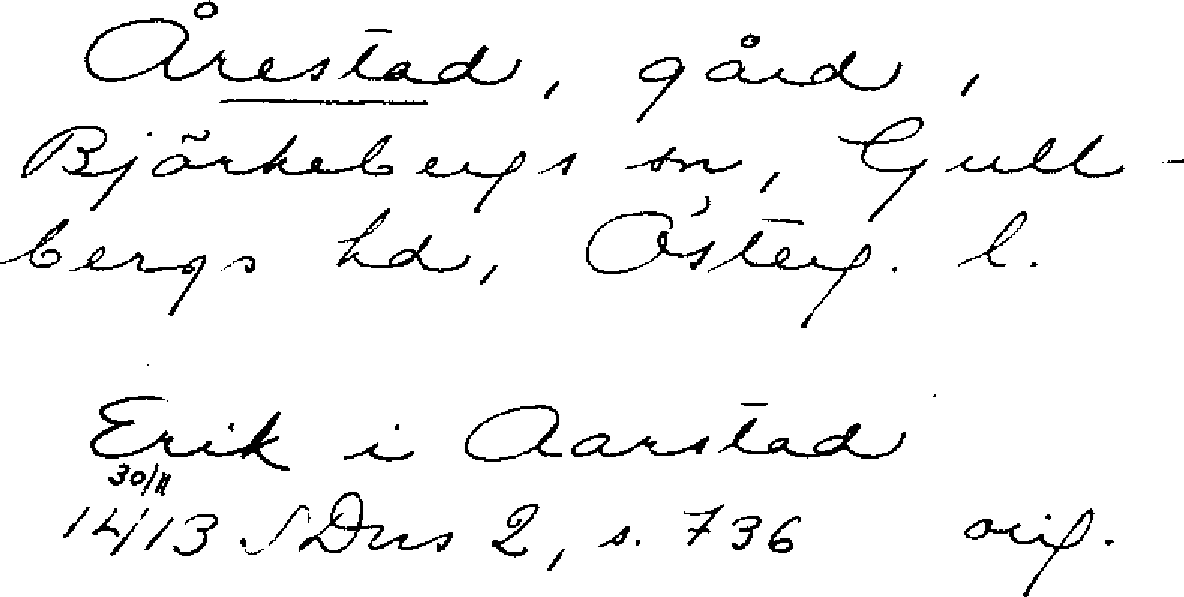 Årestad, gård,
Björkebergs sn, Gull-
bergs hd, Österg. l.
Erik i Aarstad
30/11
1413 SDns 2, s. 736 orig.